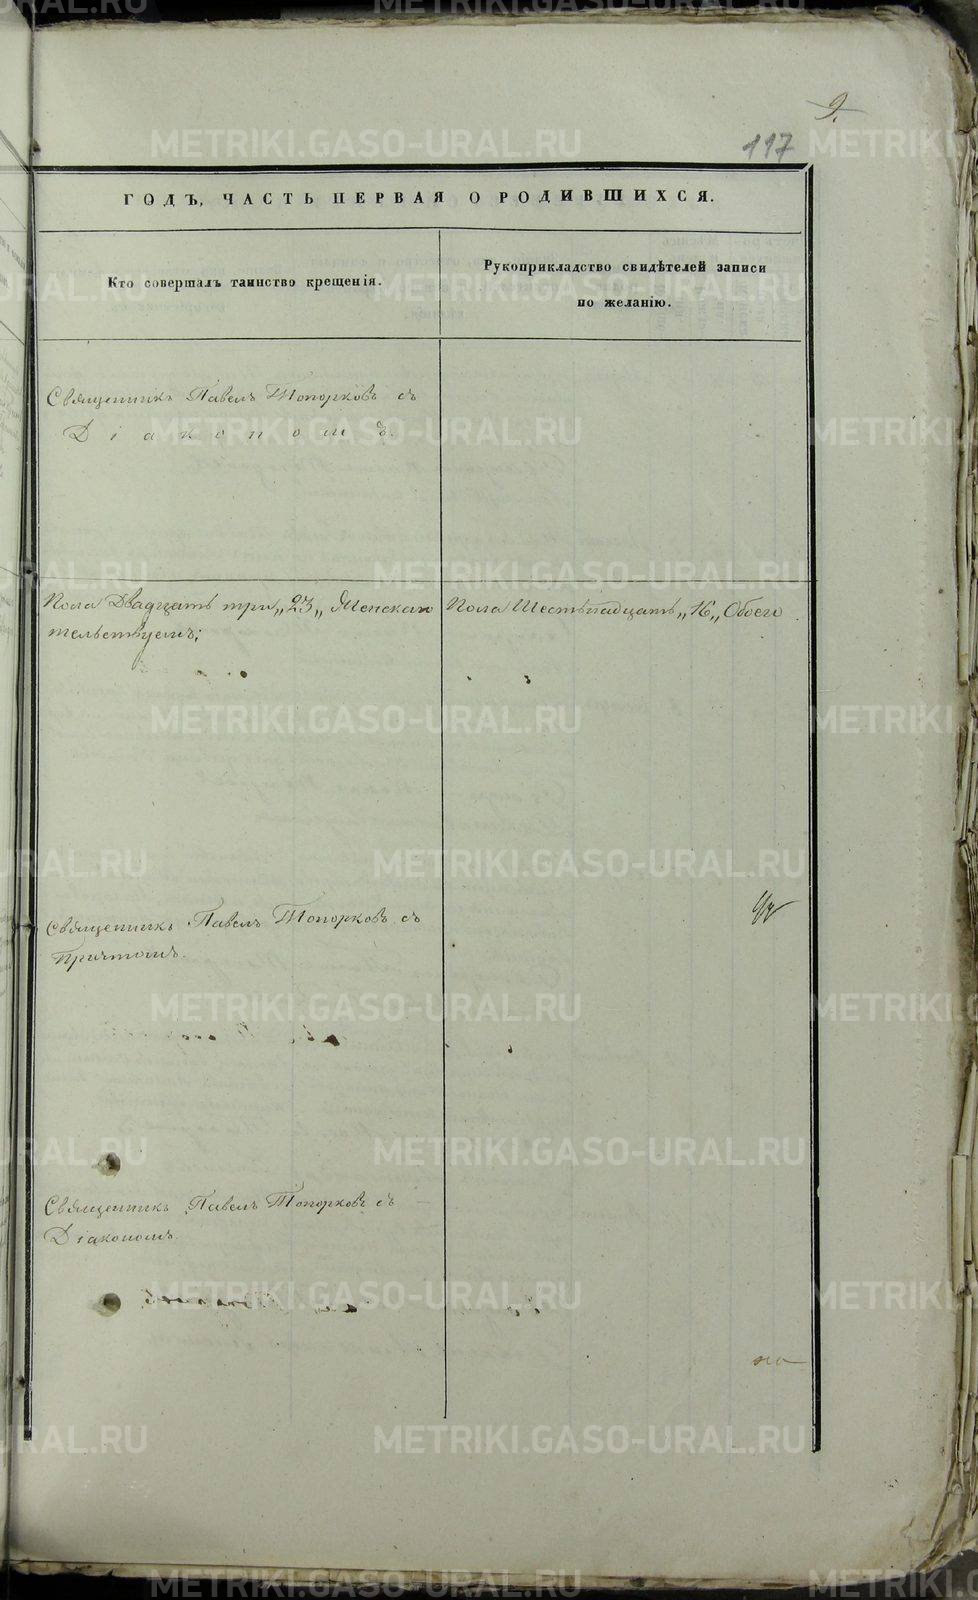 9.
117
ГОДЪ, ЧАСТЬ ПЕРВАЯ О РОДИВШИХСЯ.
Кто совершалъ таинство крещенія.
Рукоприкладство свидѣтелей записи
по желанію.
Священникъ Павелъ Топорковъ съ
Діакономъ.
Пола Двадцать три „23„ Женскаго Пола Шестьнадцать „16„ Обоего
тельствуемъ;
Священникъ Павелъ Топорковъ съ
Причтомъ.
Священникъ Павелъ Топорковъ съ
Діакономъ.
METRIKI.GASO-URAL.RU